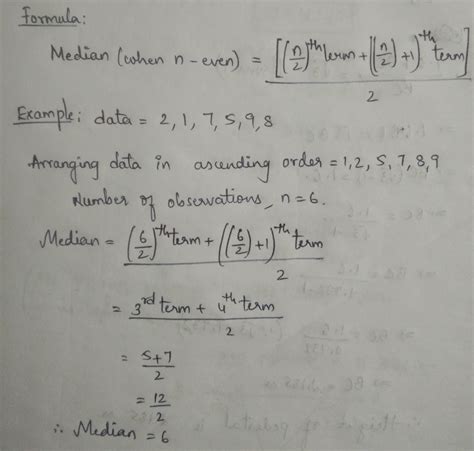 Formula:
Median (when n-even) = [(n/2)^th term + ((n/2)+1)^th term] / 2
Example: data = 2, 1, 7, 5, 9, 8
Arranging data in ascending order = 1, 2, 5, 7, 8, 9
Number of observations, n = 6.
Median = (6/2)^th term + ((6/2)+1)^th term / 2
= 3^rd term + 4^th term / 2
= 5+7 / 2
= 12 / 2
∴ Median = 6